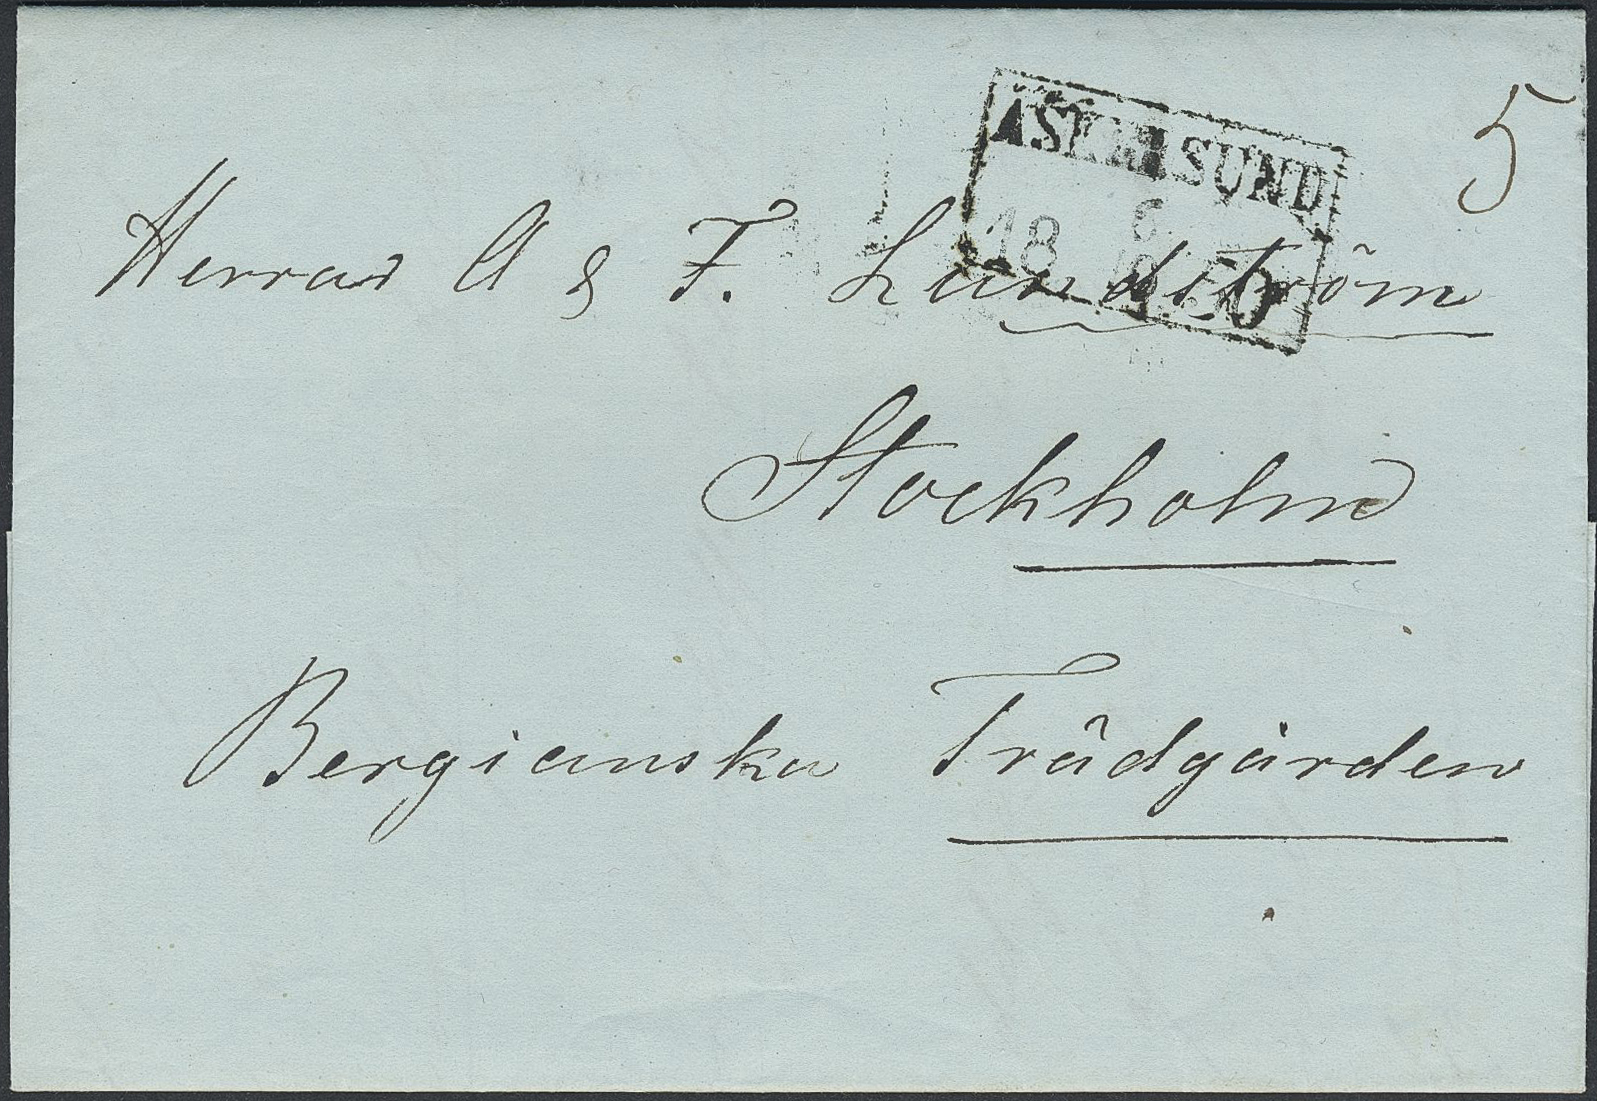 5
ASKERSUND
6
18 50
Herrar A & F. Lundström
Stockholm
Bergianska Trädgården